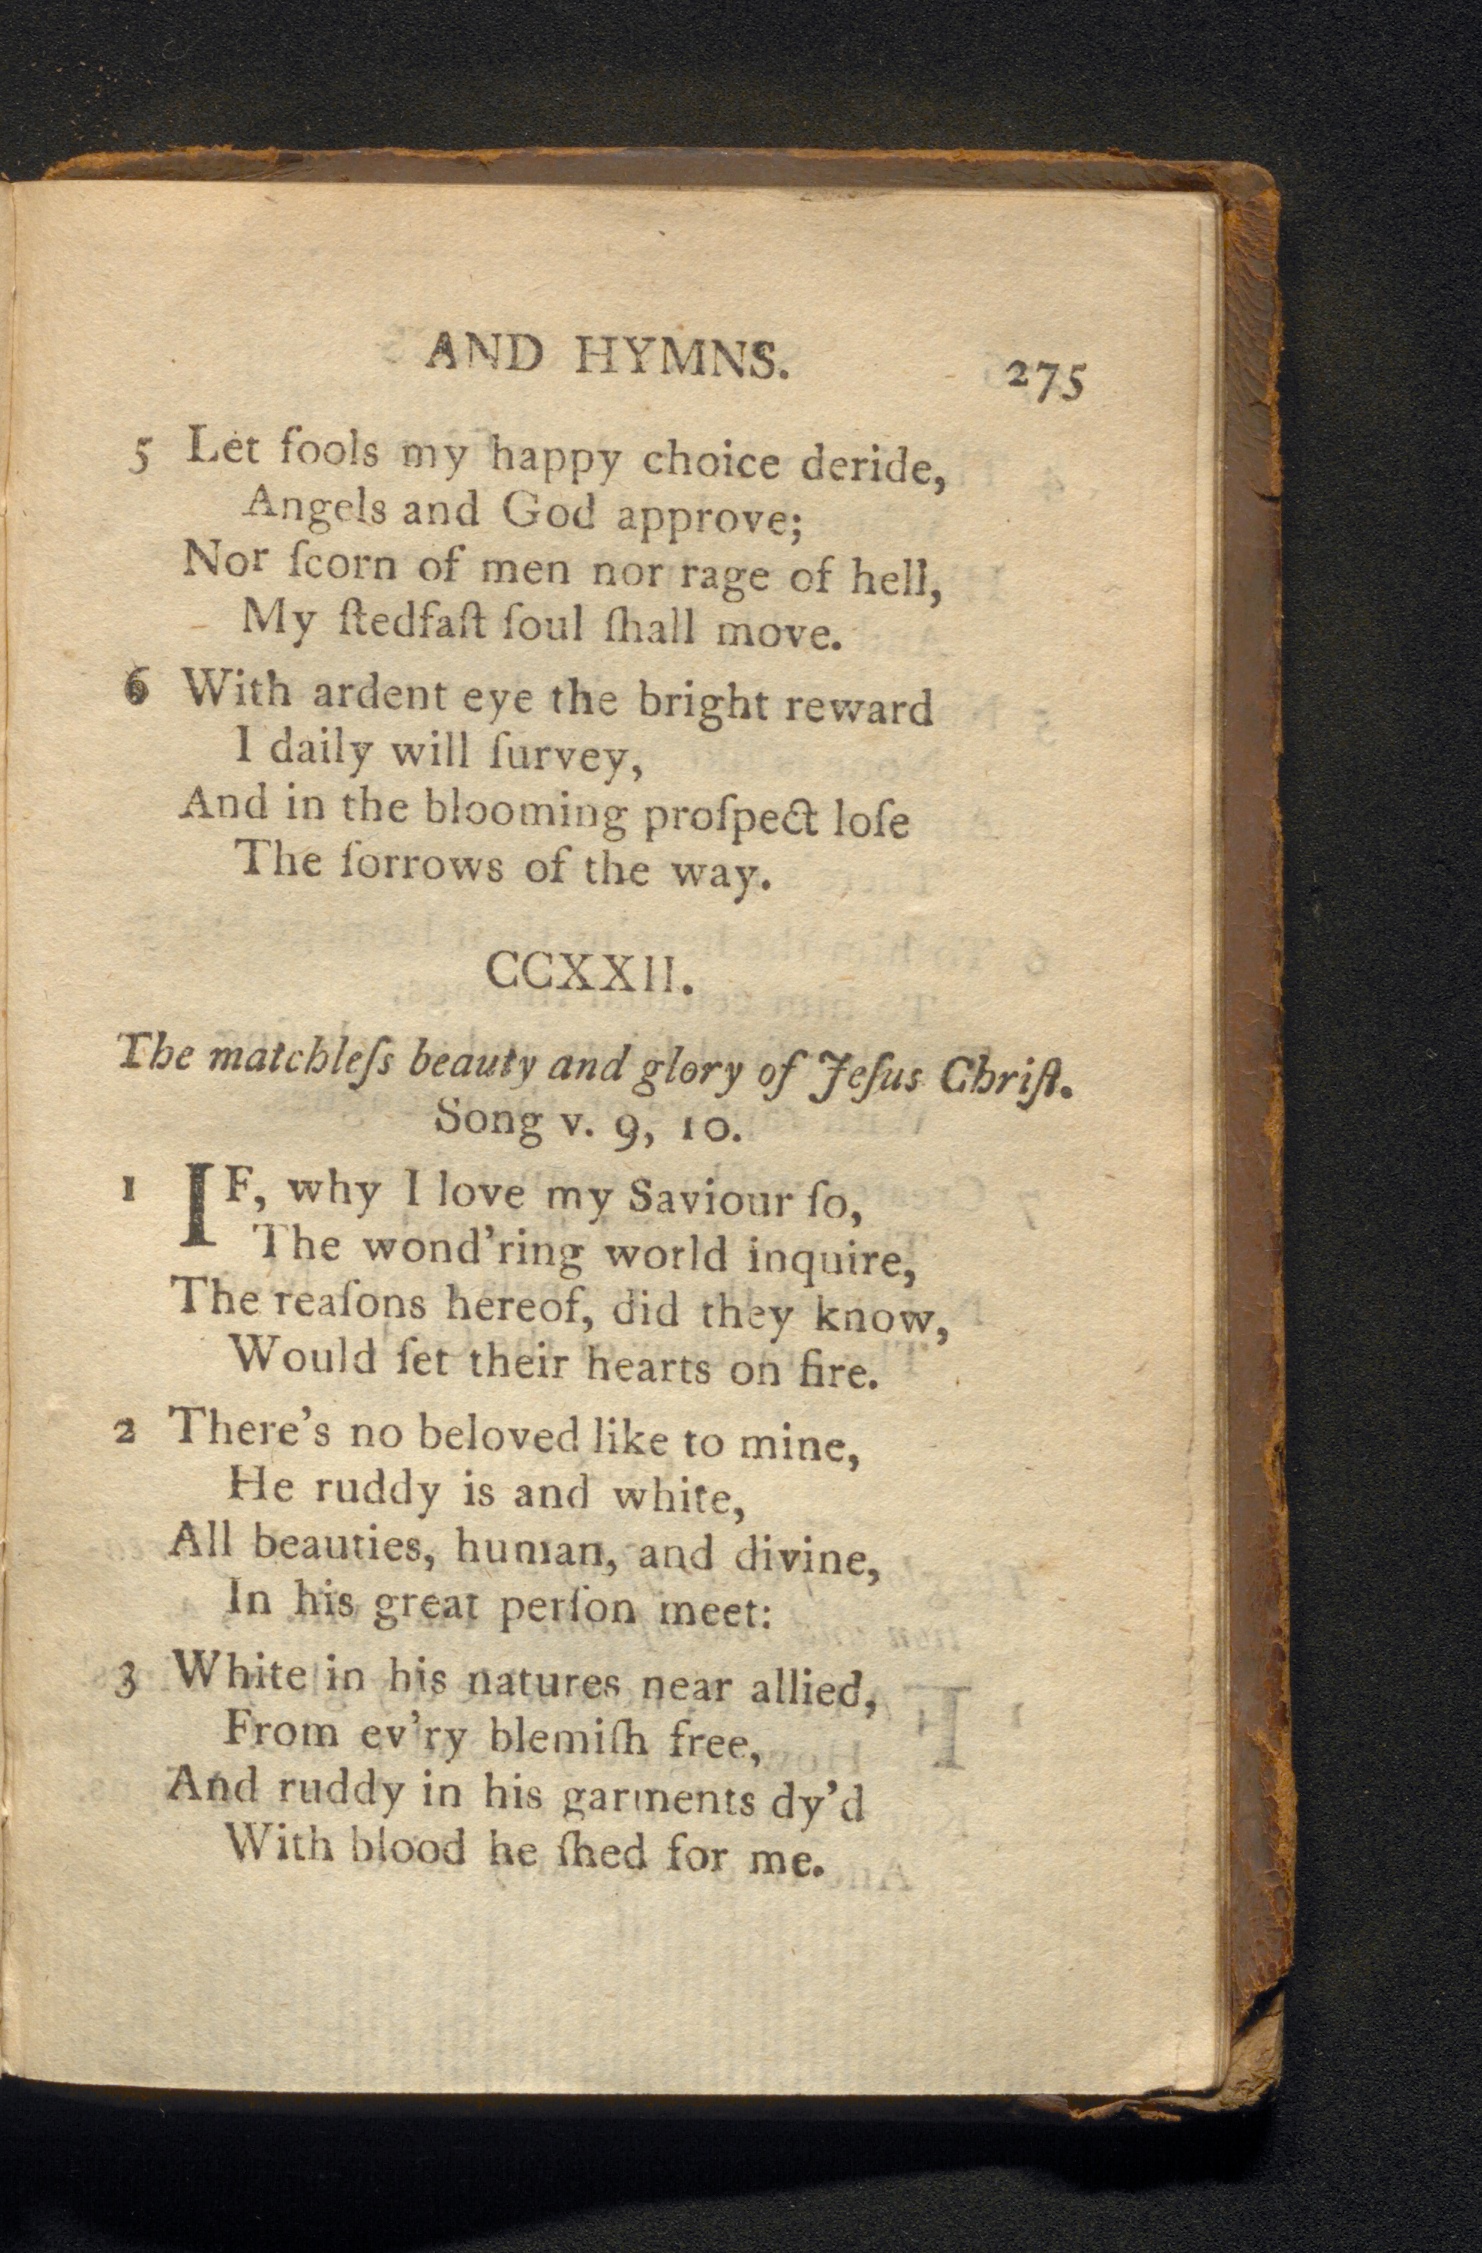 AND HYMNS. 275
5 Let fools my happy choice deride,
Angels and God approve;
Nor ſcorn of men nor rage of hell,
My ſtedfaſt ſoul ſhall move.
6 With ardent eye the bright reward
I daily will ſurvey,
And in the blooming proſpect loſe
The ſorrows of the way.
CCXXII.
The matchleſs beauty and glory of Jeſus Chriſt.
Song v. 9, 10.
1 IF, why I love my Saviour ſo,
The wond'ring world inquire,
The reaſons hereof, did they know,
Would ſet their hearts on fire.
2 There's no beloved like to mine,
He ruddy is and white,
All beauties, human, and divine,
In his great perſon meet:
3 White in his natures near allied,
From ev'ry blemiſh free,
And ruddy in his garments dy'd
With blood he ſhed for me.